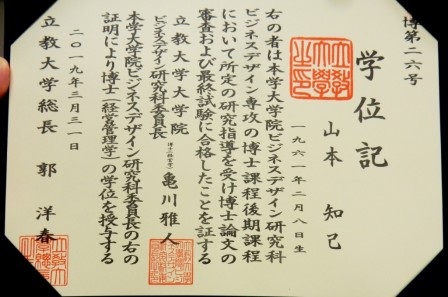 博第二六号
学位記
山本知己
一九六一年二月八日生
右の者は本大学院ビジネスデザイン研究科
ビジネスデザイン専攻の博士課程後期課程
において所定の研究指導を受け博士論文の
審査および最終試験に合格したことを証する
立教大学大学院
ビジネスデザイン研究科委員長
亀川雅人
本学大学院ビジネスデザイン研究科委員長の右の
証明により博士(経営管理学)の学位を授与する
二〇一九年三月三一日
立教大学総長 郭洋春